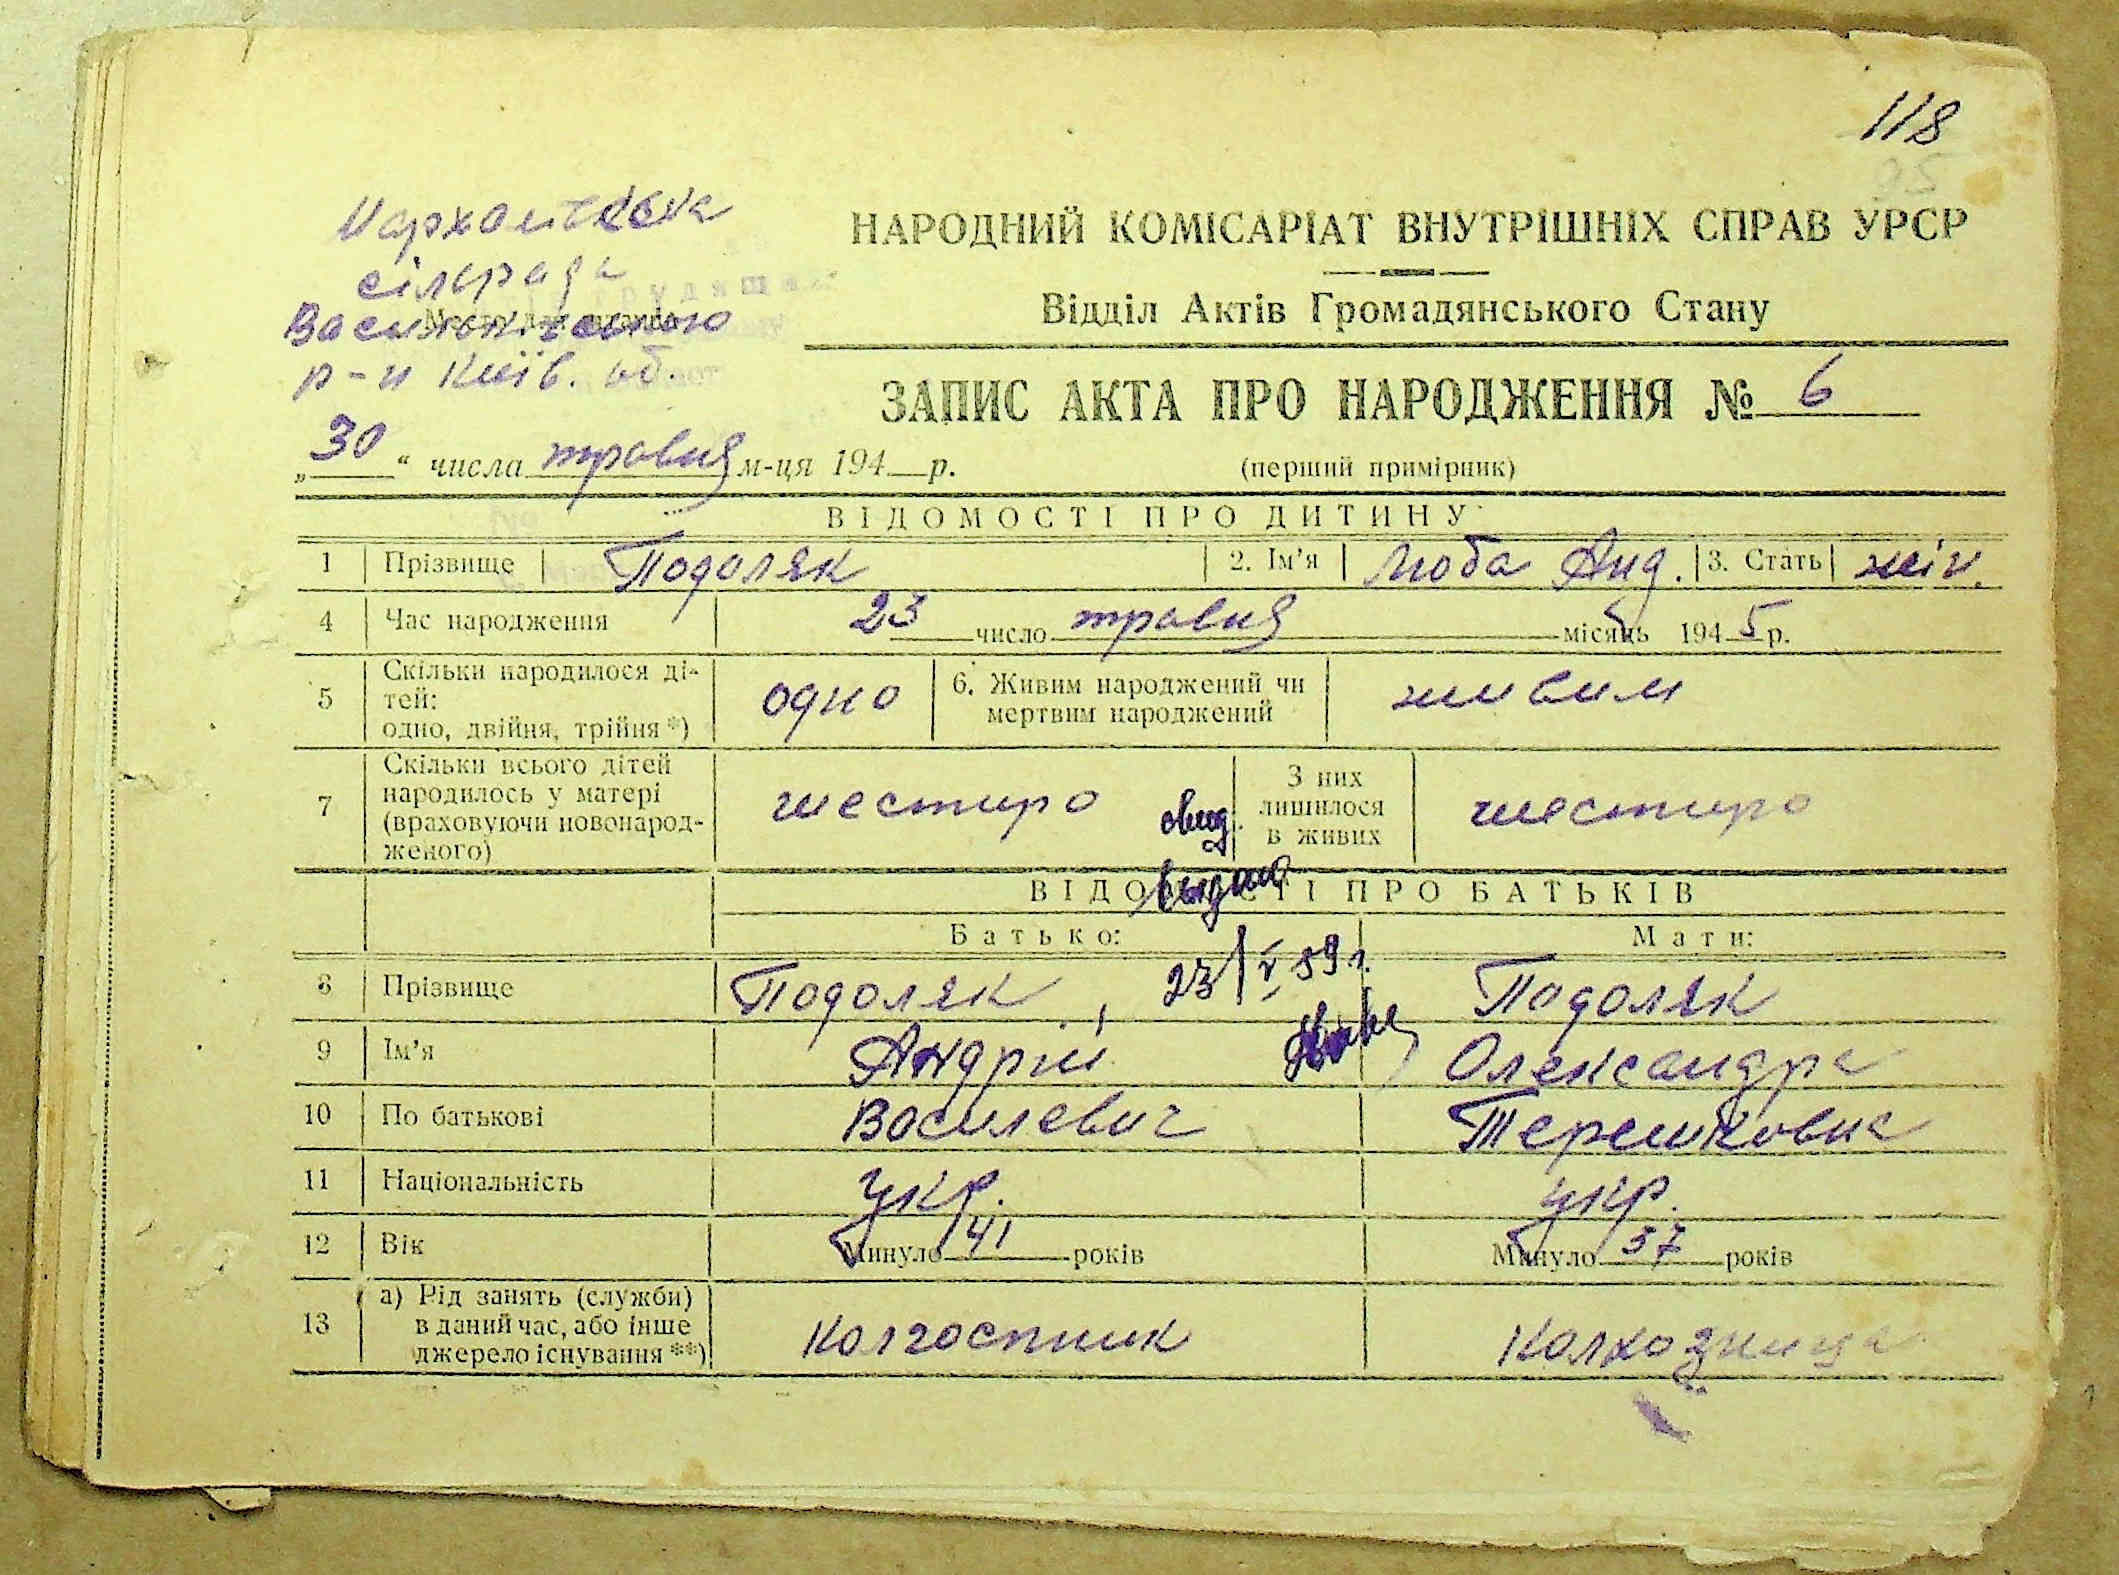 118
Мархалівська
сільрада
Васильківського
р-н Київ. об.
НАРОДНИЙ КОМІСАРІАТ ВНУТРІШНІХ СПРАВ УРСР
Відділ Актів Громадянського Стану
ЗАПИС АКТА ПРО НАРОДЖЕННЯ № 6
„30“ числа травня м-ця 194 р.
(перший примірник)
ВІДОМОСТІ ПРО ДИТИНУ
1 Прізвище Подоляк 2. Ім’я Люба Анд. 3. Стать жін.
4 Час народження 23 число травня місяць 1945 р.
5 Скільки народилося ді-
тей:
одно, двійня, трійня *)
одно
6. Живим народжений чи
мертвим народжений
живим
7 Скільки всього дітей
народилось у матері
(враховуючи новонарод-
женого)
шестиро
З них
лишилося
в живих
шестиро
ВІДОМОСТІ ПРО БАТЬКІВ
Батько: Мати:
23/V 59 г.
8 Прізвище Подоляк Подоляк
9 Ім’я Андрій Олександра
10 По батькові Василевич Терешковна
11 Національність укр. укр.
12 Вік Минуло 41 років Минуло 37 років
13 а) Рід занять (служби)
в даний час, або інше
джерело існування **)
колгоспник колхозница